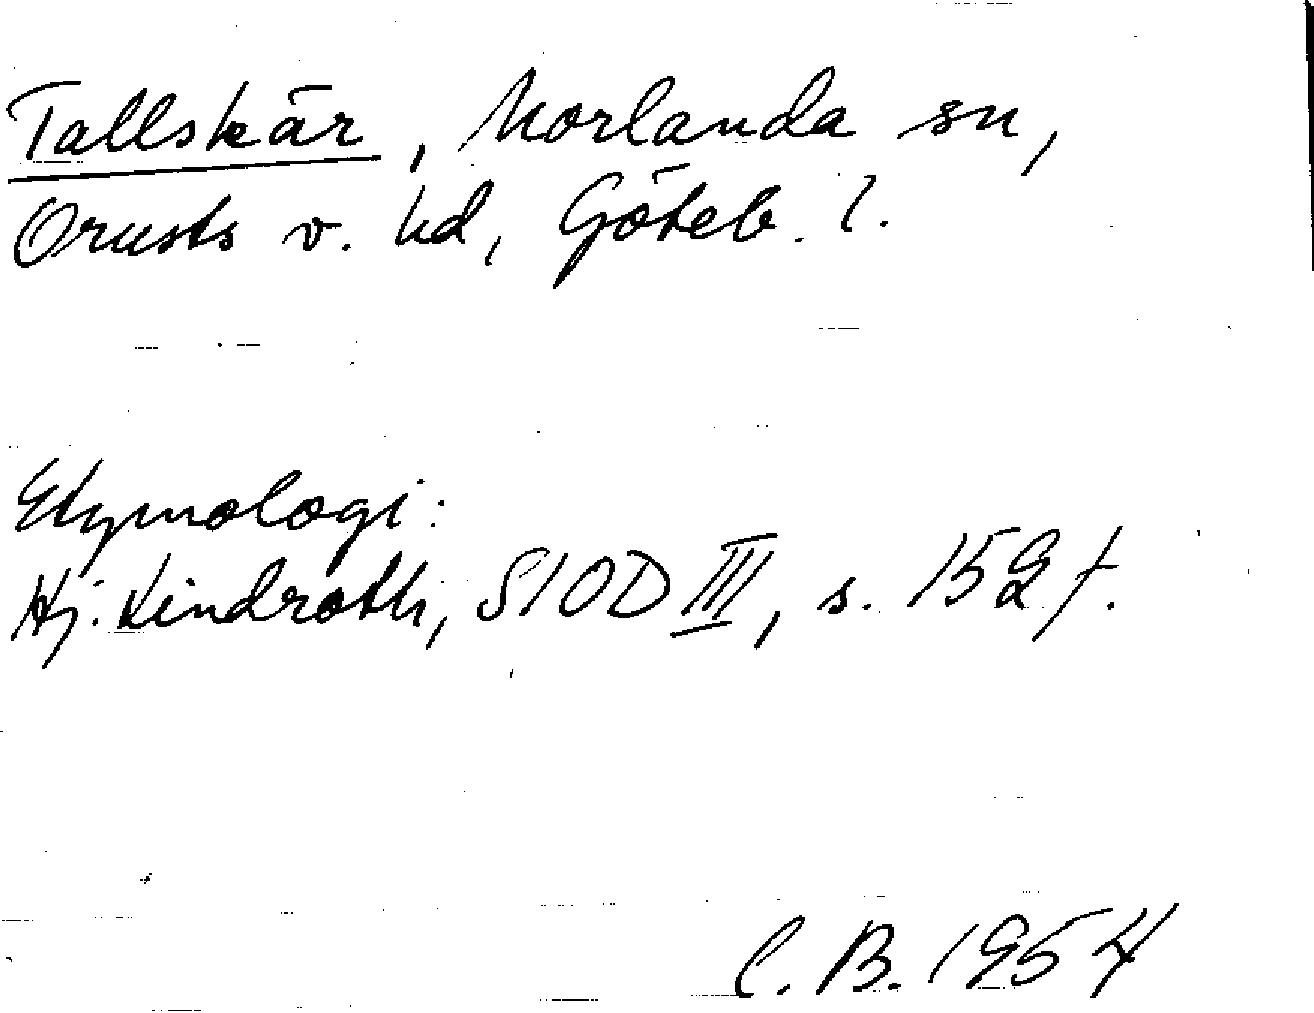 Tallskär, Morlanda sn,
Orusts v. hd, Göteb. l.
Etymologi:
Hj. Lindroth, SIOD III, s. 152 f.
C. B. 1954